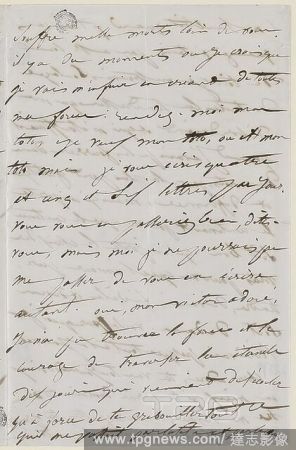 souffre mille morts loin de vous.
il y a des moments où je crois que
je vais m'enfuir en criant de toutes
mes forces : rendez-moi mon
toto, je veux mon toto, où est mon
toto moi je vous écris quatre
et cinq et six lettres par jour
vous vous en passeriez bien, dites
vous, mais moi je ne pourrais pas
me passer de vous en écrire
autant. oui, mon victor adoré,
jamais je trouve la force et le
courage de
dix jours qui viennent de
qu'à force de te gribouiller
qui me
TPG
www.tpgnews.com / 達志影像